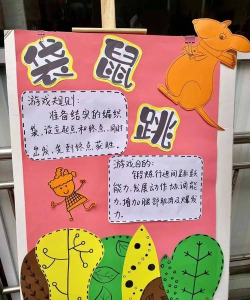 袋鼠跳
游戏规则:
准备结实的编织
袋,设立起点和终点,同时
出发,先到终点获胜
游戏目的:
锻炼行进间跳跃
能力,发展动作协调能
力,增加腿部肌肉及爆发
力.